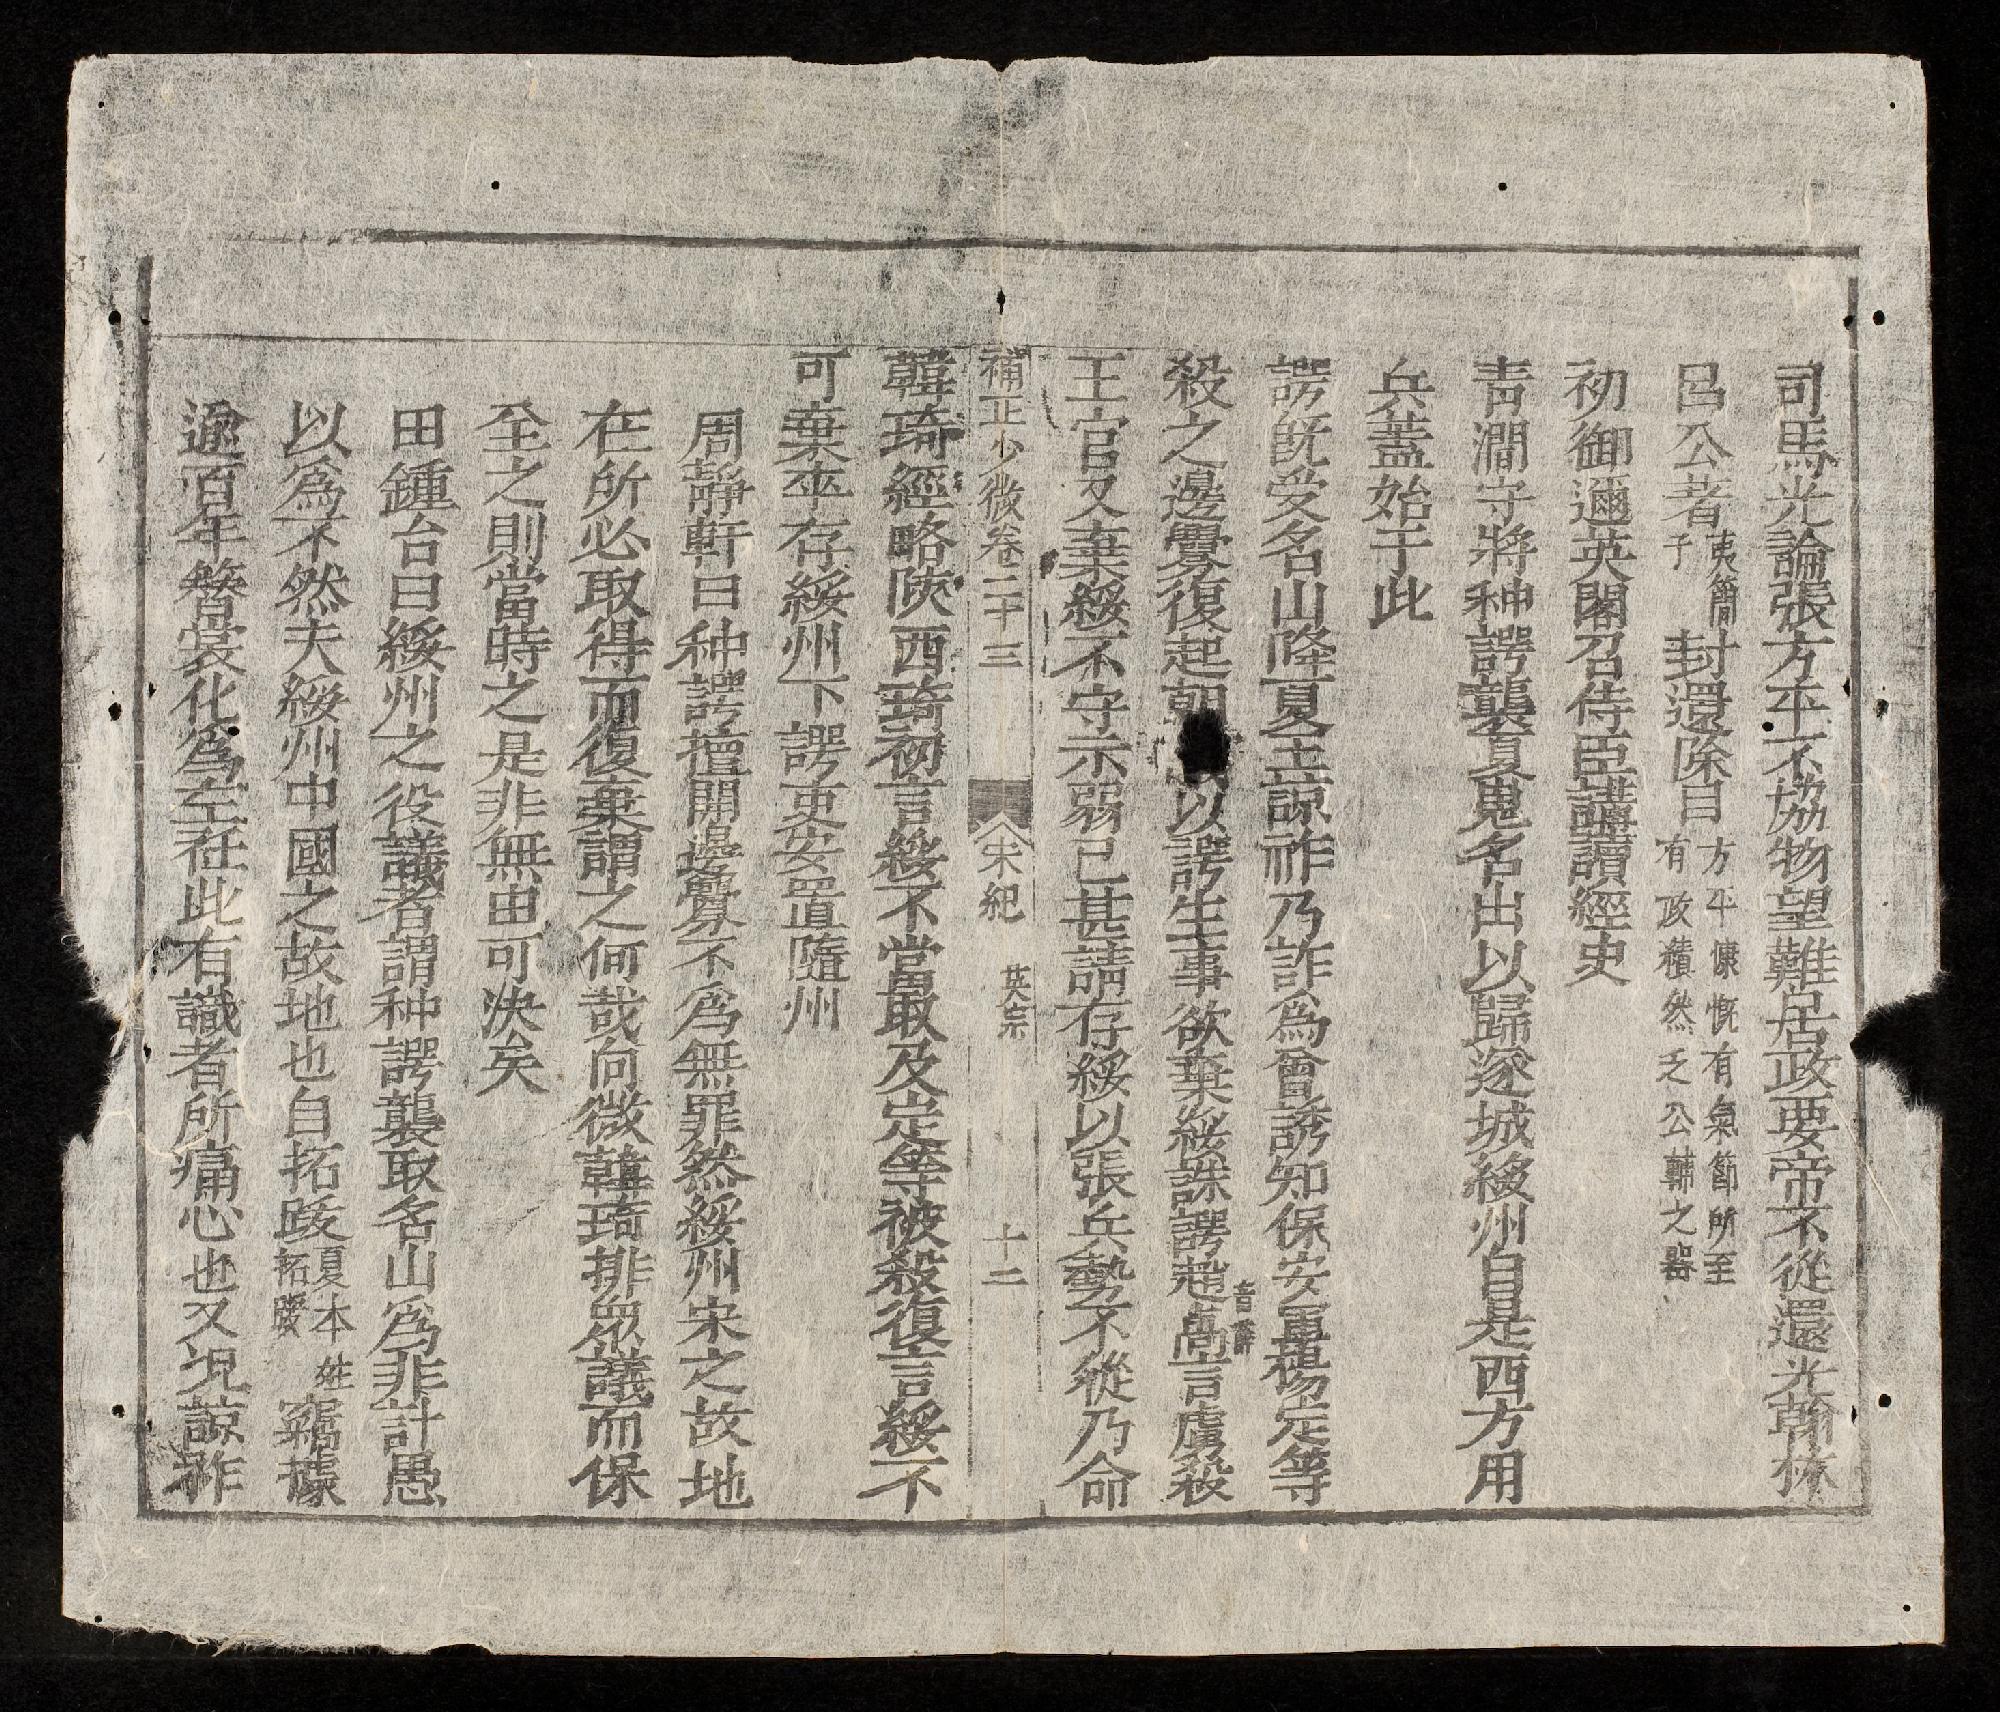 司馬光論張方平不協物望難居政要帝不從還光翰林
呂公著夷簡子封還除目方平慷慨有氣節所至有政積然乏公輔之器
初御邇英閣召侍臣講讀經史
青澗守將种諤襲夏嵬名山以歸遂城綏州自是西方用
兵蓋始于此
諤旣受名山降夏主諒祚乃詐爲會誘知保安軍楊定等
殺之邊釁復起朝以諤生事欲棄綏誅諤趙卨音薛言虜殺
王官又棄綏不守示弱已甚請存綏以張兵勢不從乃命
補正少微卷二十三 宋紀 英宗 十二
韓琦經略陝西琦初言綏不當取及定等被殺復言綏不
可棄卒存綏州下諤吏安置隨州
周靜軒曰种諤擅開邊釁不爲無罪然綏州宋之故地
在所必取得而復棄謂之何哉向微韓琦排衆議而保
全之則當時之是非無由可決矣
田鍾台曰綏州之役議者謂种諤襲取名山爲非計愚
以爲不然夫綏州中國之故地也自拓跋夏本姓拓跋竊據
逾百年簪裳化爲左衽此有識者所痛心也又況諒祚